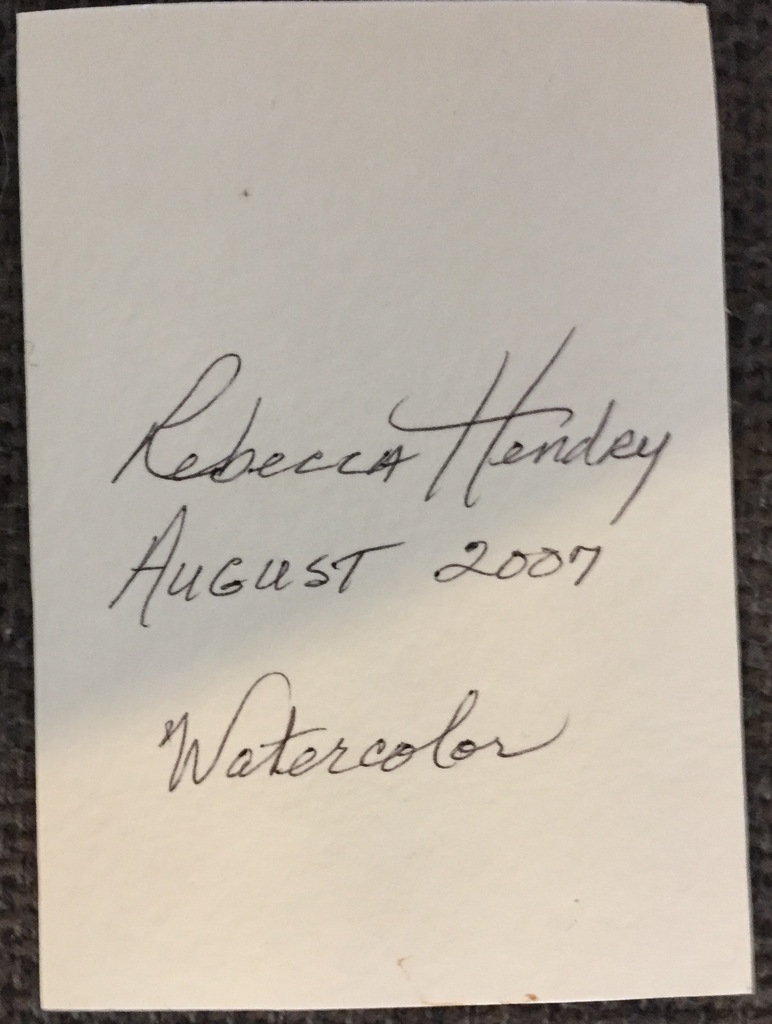 Rebecca Hendry
August 2007
Watercolor